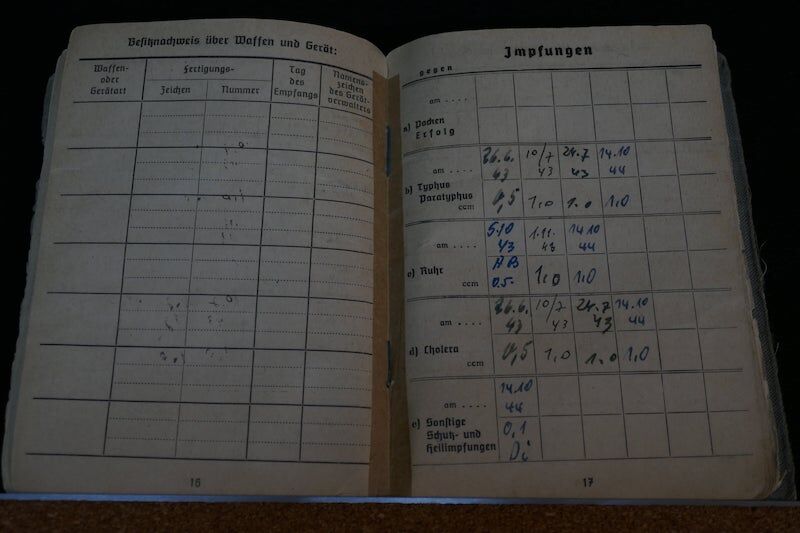 Besitznachweis über Waffen und Gerät:
Waffen- oder Gerätart
Fertigungs-
Zeichen
Nummer
Tag des Empfangs
Namens- zeichen des Gerät- verwalters
16
Impfungen
gegen
am . . . .
a) Pocken
Erfolg
26.6. 10/7 24.7 14.10
am . . . . 43 43 43 44
b) Typhus
Paratyphus
ccm 0,5 1,0 1,0 1,0
5.10 1.11. 14.10
am . . . . 43 43 44
A B
c) Ruhr
ccm 0.5. 1,0 1,0
26.6. 10/7 24.7 14.10
am . . . . 43 43 43 44
d) Cholera
ccm 0,5 1,0 1,0 1,0
14.10
am . . . . 44
e) Sonstige
Schutz- und
Heilimpfungen
0,1
Di
17